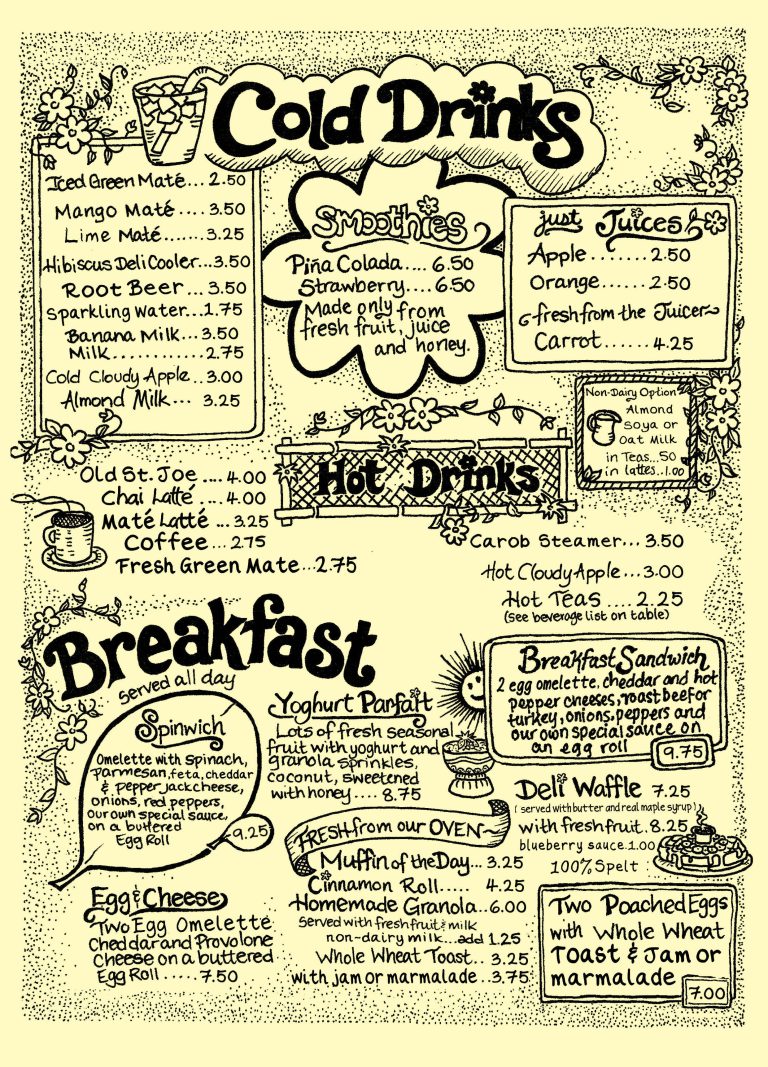 Cold Drinks
Iced Green Maté... 2.50
Mango Maté .... 3.50
Lime Maté....... 3.25
Hibiscus Deli Cooler...3.50
Root Beer ... 3.50
Sparkling Water...1.75
Banana Milk...3.50
Milk............ 2.75
Cold Cloudy Apple .. 3.00
Almond Milk... 3.25
Smoothies
Piña Colada.... 6.50
Strawberry.... 6.50
Made only from
fresh fruit, juice
and honey.
just Juices
Apple ....... 2.50
Orange ...... 2.50
fresh from the Juicer
Carrot ...... 4.25
Non-Dairy Option
Almond
Soya or
Oat Milk
in Teas...50
in lattes..1.00
Hot Drinks
Old St. Joe .... 4.00
Chai Latté .... 4.00
Maté Latté ... 3.25
Coffee ... 2.75
Fresh Green Mate ..2.75
Carob Steamer... 3.50
Hot Cloudy Apple ...3.00
Hot Teas .... 2.25
(see beverage list on table)
Breakfast
Served all day
Spinwich
Omelette with spinach,
parmesan, feta, cheddar
& pepper jack cheese,
onions, red peppers,
our own special sauce,
on a buttered
Egg Roll
9.25
Egg & Cheese
Two Egg Omelette
Cheddar and Provolone
Cheese on a buttered
Egg Roll ..... 7.50
Yoghurt Parfait
Lots of fresh seasonal
fruit with yoghurt and
granola sprinkles,
coconut, sweetened
with honey .... 8.75
FRESH from our OVEN
Muffin of the Day... 3.25
Cinnamon Roll..... 4.25
Homemade Granola..6.00
Served with fresh fruit & milk
non-dairy milk...add 1.25
Whole Wheat Toast.. 3.25
with jam or marmalade ..3.75
Breakfast Sandwich
2 egg omelette, cheddar and hot
pepper cheeses, roast beef or
turkey, onions, peppers and
our own special sauce on
an egg roll
9.75
Deli Waffle 7.25
(served with butter and real maple syrup)
with fresh fruit. 8.25
blueberry sauce 1.00
100% Spelt
Two Poached Eggs
with Whole Wheat
Toast & Jam or
marmalade
7.00